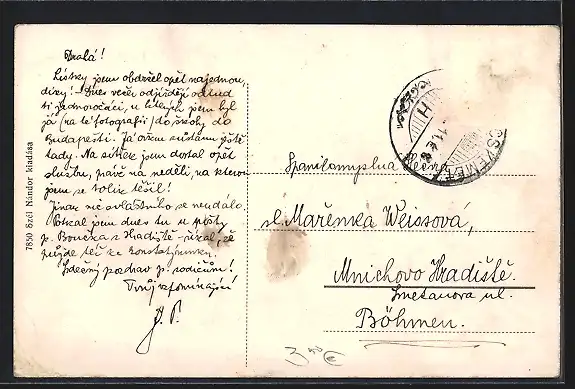 Drahá!
Lístky jsem obdržel opět najednou,
díky! – Dnes večer odjíždějí odtud
ti jednoročáci, u kterých jsem byl
já (na té fotografii) do školy do
Budapešti. Já ovšem zůstanu ještě
tady. Na sítek jsem dostal opět
službu, právě na neděli, na kterou
jsem se tolik těšil!
Jinak nic zvláštního se neudálo.
Potkal jsem dnes tu u pošty
p. Boučka z Hradiště – říkal, že
půjde též ke
Srdečný pozdrav p. rodičům!
Tvůj vzpomínající
J. P.
7830 Szél Nándor kiadása
Spanilomyslná slečna
sl. Mařenka Weissová,
Mnichovo Hradiště.
Smetanova ul.
Böhmen.
3 50 €